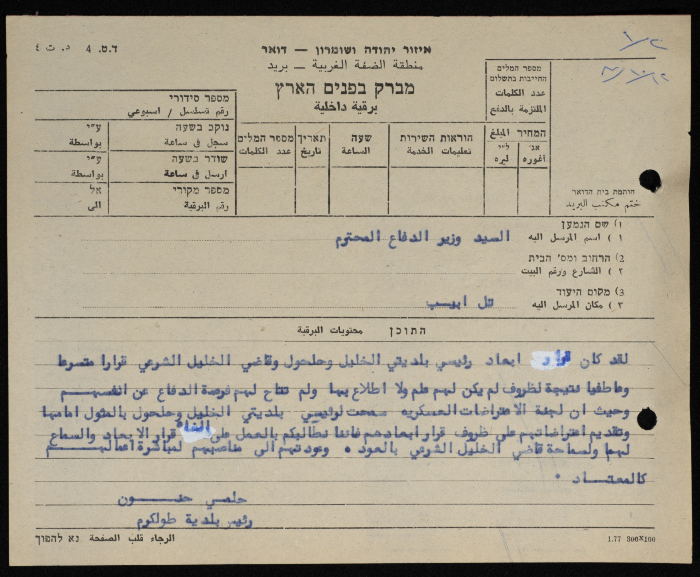 ד.ט. 4 د. ت ٤
איזור יהודה ושומרון — דואר
منطقة الضفة الغربية — بريد
מברק בפנים הארץ
برقية داخلية
מספר המלים
החייבות בתשלום
عدد الكلمات
الملتزمة بالدفع
המחיר المبلغ
אג' اغوره
ל"י ليره
הוראות השירות
تعليمات الخدمة
שעה
الساعة
תאריך
تاريخ
מספר המלים
عدد الكلمات
מספר סידורי
رقم تسلسل / اسبوعي
נוקב בשעה ע"י
سجل في ساعة بواسطة
שודר בשעה ע"י
ارسل في ساعة بواسطة
מספר מקורי אל
رقم البرقية الى
חותמת בית הדואר
ختم مكتب البريد
1) שם הנמען
١ ) اسم المرسل اليه
السيد وزير الدفاع المحترم
2) הרחוב ומס' הבית
٢ ) الشارع ورقم البيت
3) מקום היעוד
٣ ) مكان المرسل اليه
تل ابيب
התוכן محتويات البرقية
لقد كان قرار ابعاد رئيسي بلديتي الخليل وحلحول وقاضي الخليل الشرعي قرارا متسرعا
وعاطفيا نتيجة لظروف لم يكن لهم علم ولا اطلاع بها ولم تتاح لهم فرصة الدفاع عن انفسهم
وحيث ان لجنة الاعتراضات العسكريه سمحت لرئيسي بلديتي الخليل وحلحول بالمثول امامها
وتقديم اعتراضاتهم على ظروف قرار ابعادهم فاننا نطالبكم بالعمل على الغاء قرار الابعاد والسماح
لهما ولسماحة قاضي الخليل الشرعي بالعود . وعودتهم الى مناصبهم لمباشرة اعمالهم
كالمعتاد .
حلمي حنون
رئيس بلدية طولكرم
الرجاء قلب الصفحة נא להפוך
1.77 300×100